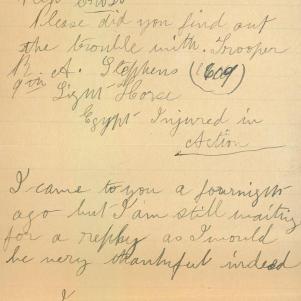 Please did you find out
the trouble with. Trooper
A. Stephens (1609)
9th Light Horse
Egypt Injured in
Action
I came to you a fournight
ago but I am still waiting
for a repley as I would
be very thankful indeed
I